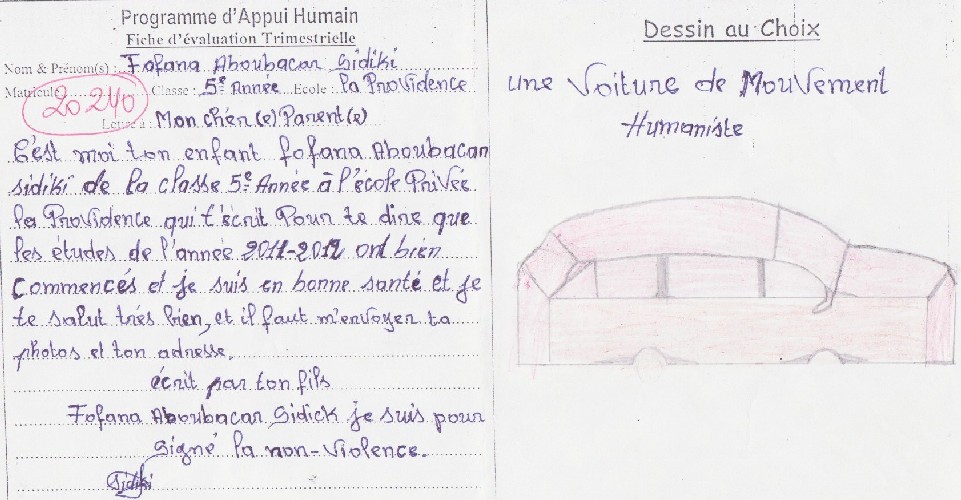 Programme d'Appui Humain
Fiche d'évaluation Trimestrielle
Nom & Prénom(s) : Fofana Aboubacar Sidiki
Matricule 20.240 Classe : 5e Année Ecole : la Providence
Lettre à : Mon chér(e) Parent(e)
C'est moi ton enfant fofana Aboubacar
sidiki de la classe 5e Année à l'école Privée
la Providence qui t'écrit Pour te dire que
les études de l'année 2011-2012 ont bien
Commencés et je suis en bonne santé et je
te salut très bien, et il faut m'envoyer ta
photos et ton adresse.
écrit par ton fils
Fofana Aboubacar Sidick je suis pour
signé la non-violence.
Sidiki
Dessin au Choix
une Voiture de MouVement
Humaniste